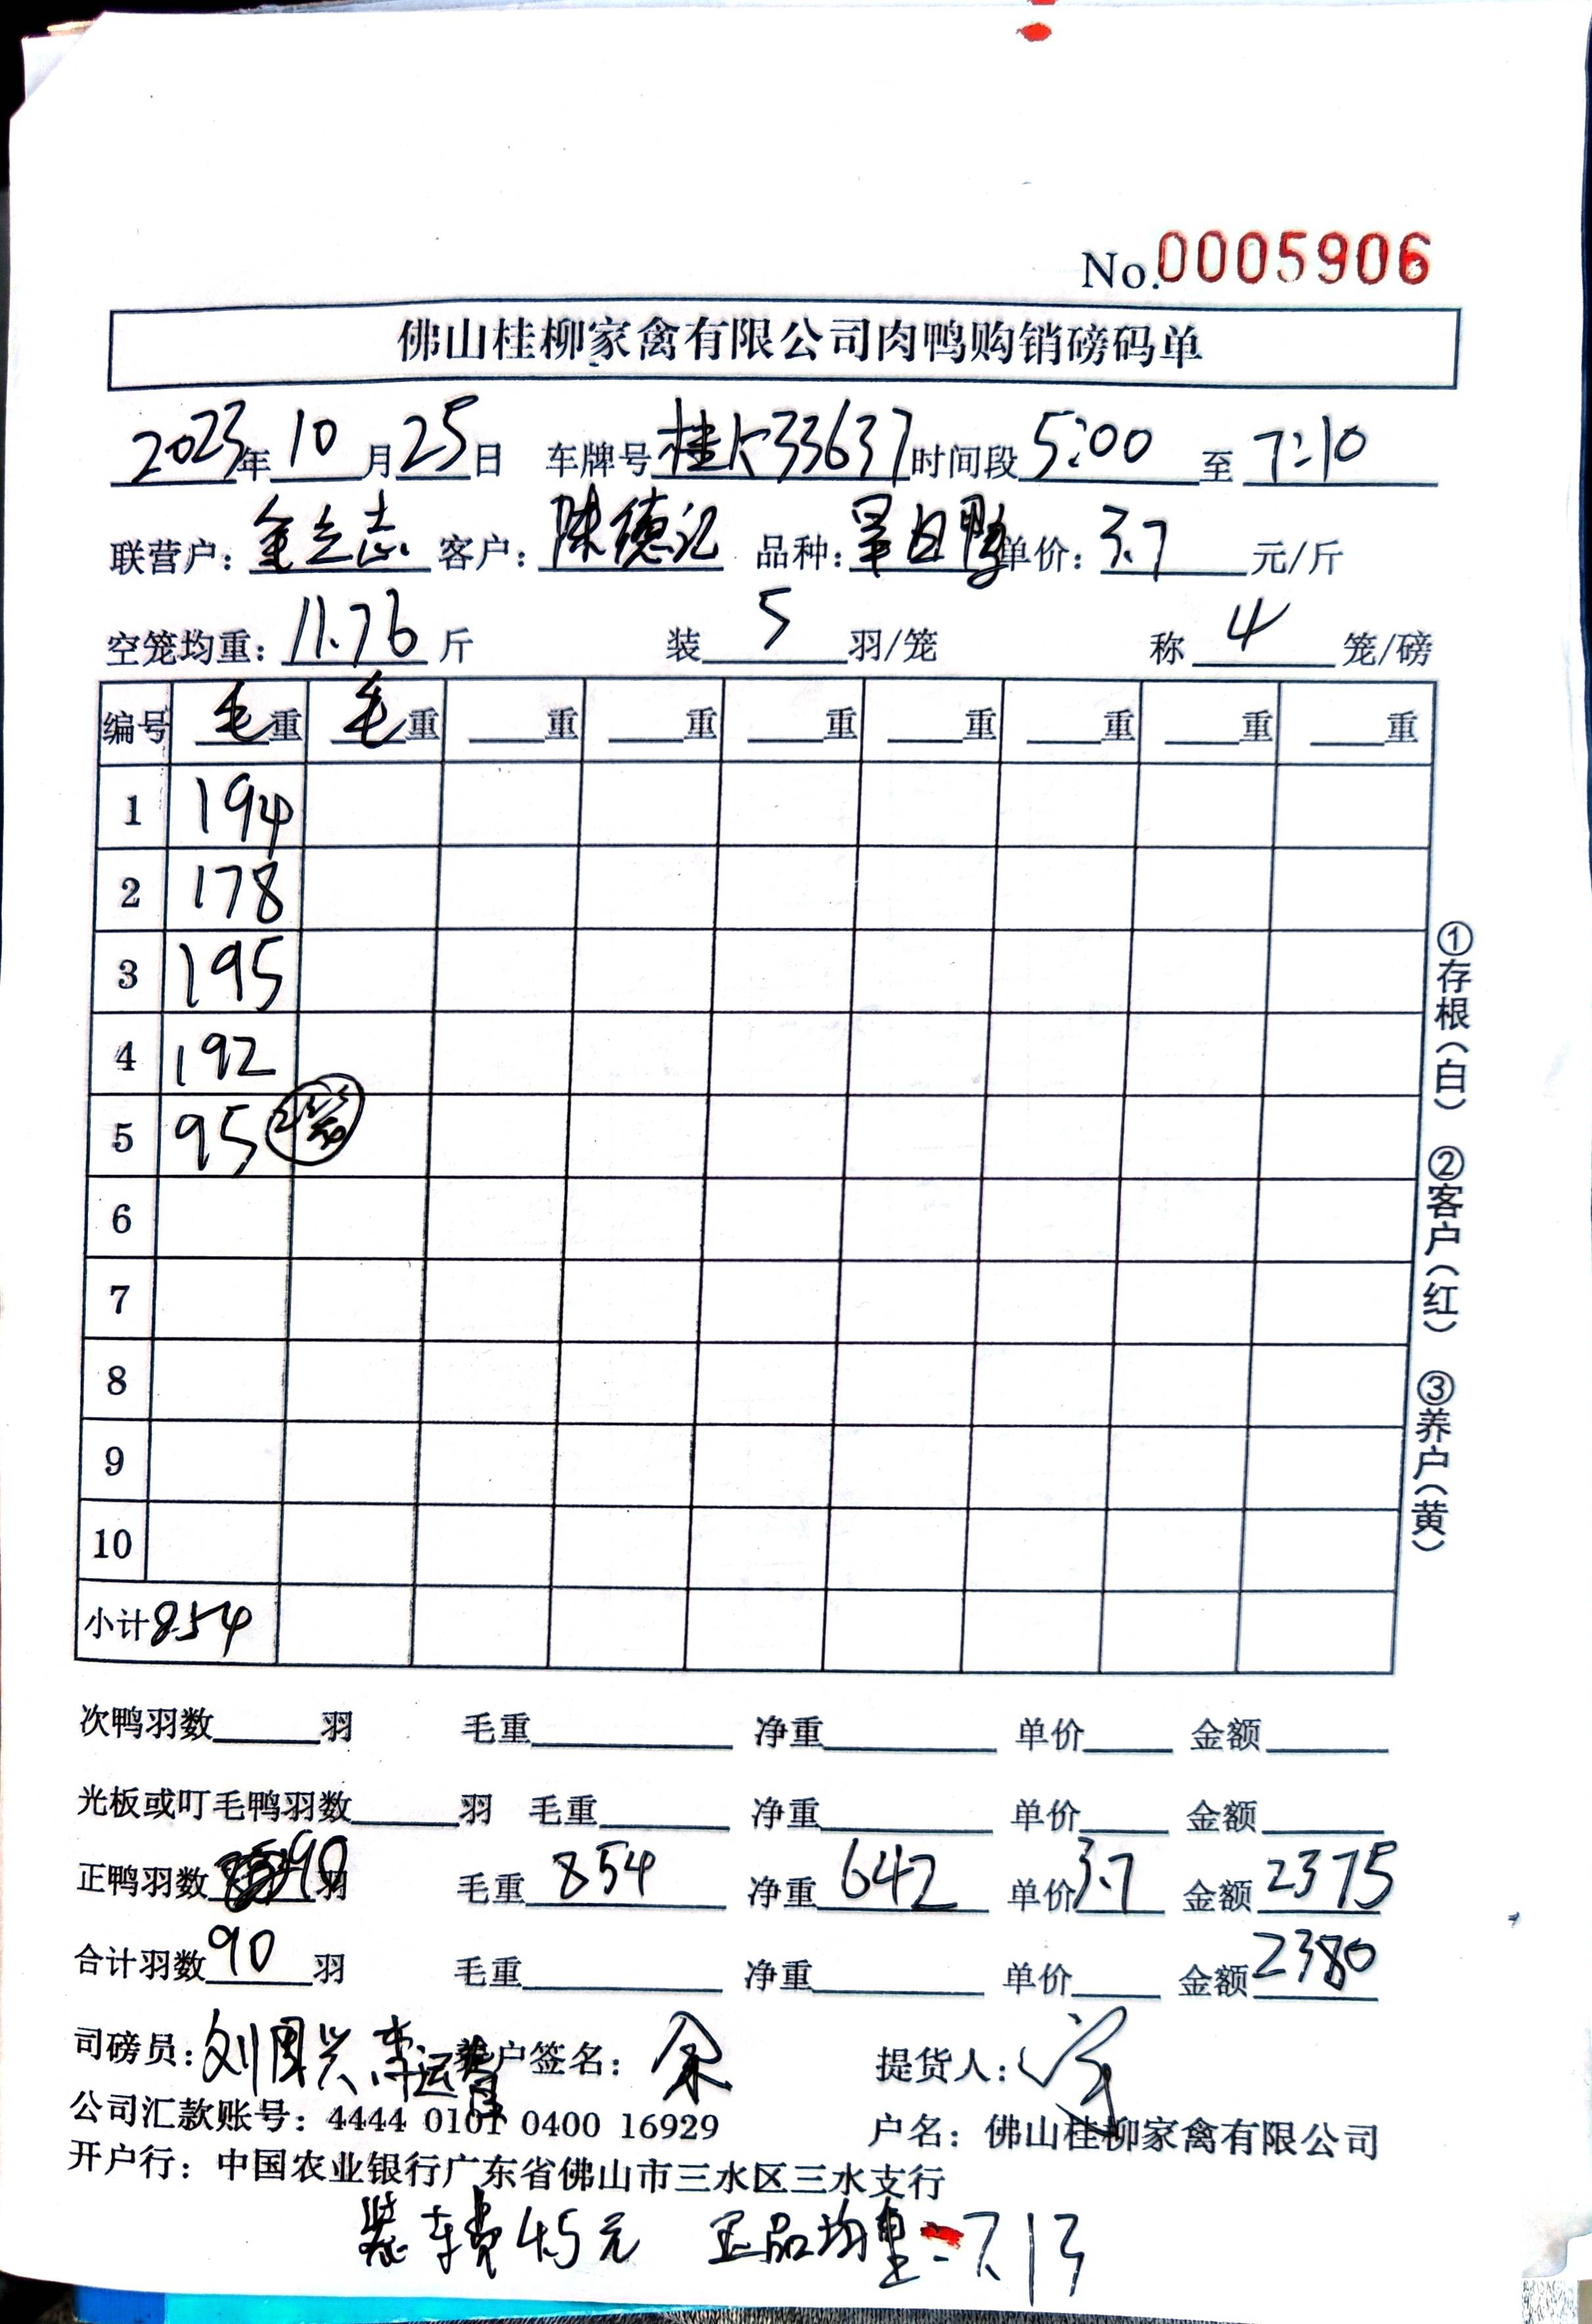 No.0005906
佛山桂柳家禽有限公司肉鸭购销磅码单
2023年10月25日 车牌号桂K33637时间段5:00至7:10
联营户:金立志 客户:陈德记 品种:单价:3.7元/斤
空笼均重:11.76斤 装5羽/笼 称4笼/磅
编号 毛重 毛重 重 重 重 重 重 重 重
1 194
2 178
3 195
4 192
5 95 2笼
6
7
8
9
10
小计854
①存根(白) ②客户(红) ③养户(黄)
次鸭羽数 羽 毛重 净重 单价 金额
光板或叮毛鸭羽数 羽 毛重 净重 单价 金额
正鸭羽数90羽 毛重854 净重642 单价3.7 金额2375
合计羽数90羽 毛重 净重 单价 金额2380
司磅员:刘国兴 李运 养户签名:余 提货人:
公司汇款账号:4444 0101 0400 16929 户名:佛山桂柳家禽有限公司
开户行:中国农业银行广东省佛山市三水区三水支行
装车费4.5元 正品均重=7.13